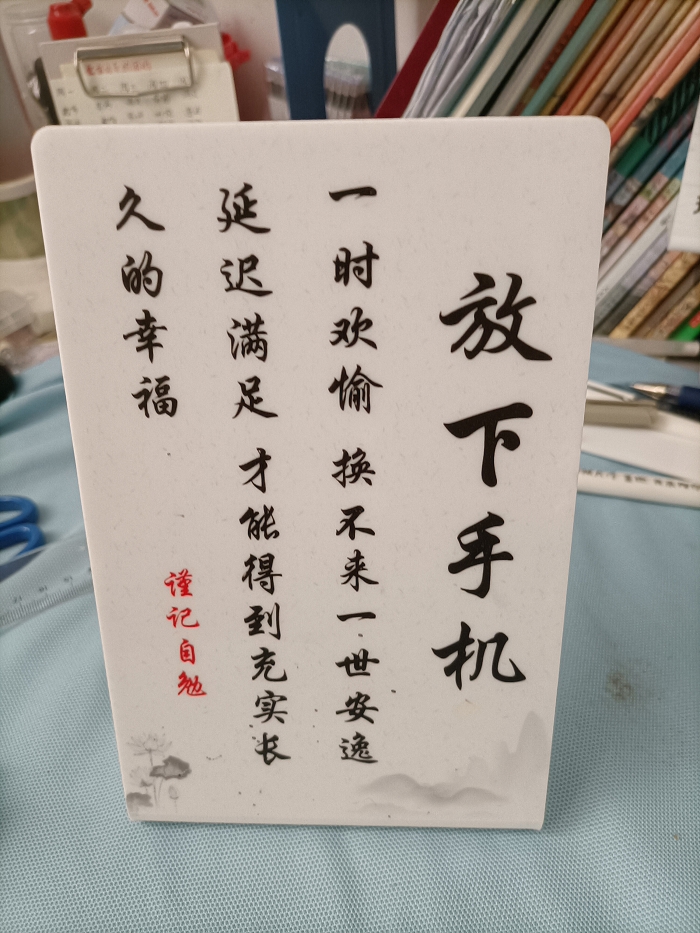 放下手机
一时欢愉 换不来一世安逸
延迟满足 才能得到充实长
久的幸福
谨记自勉